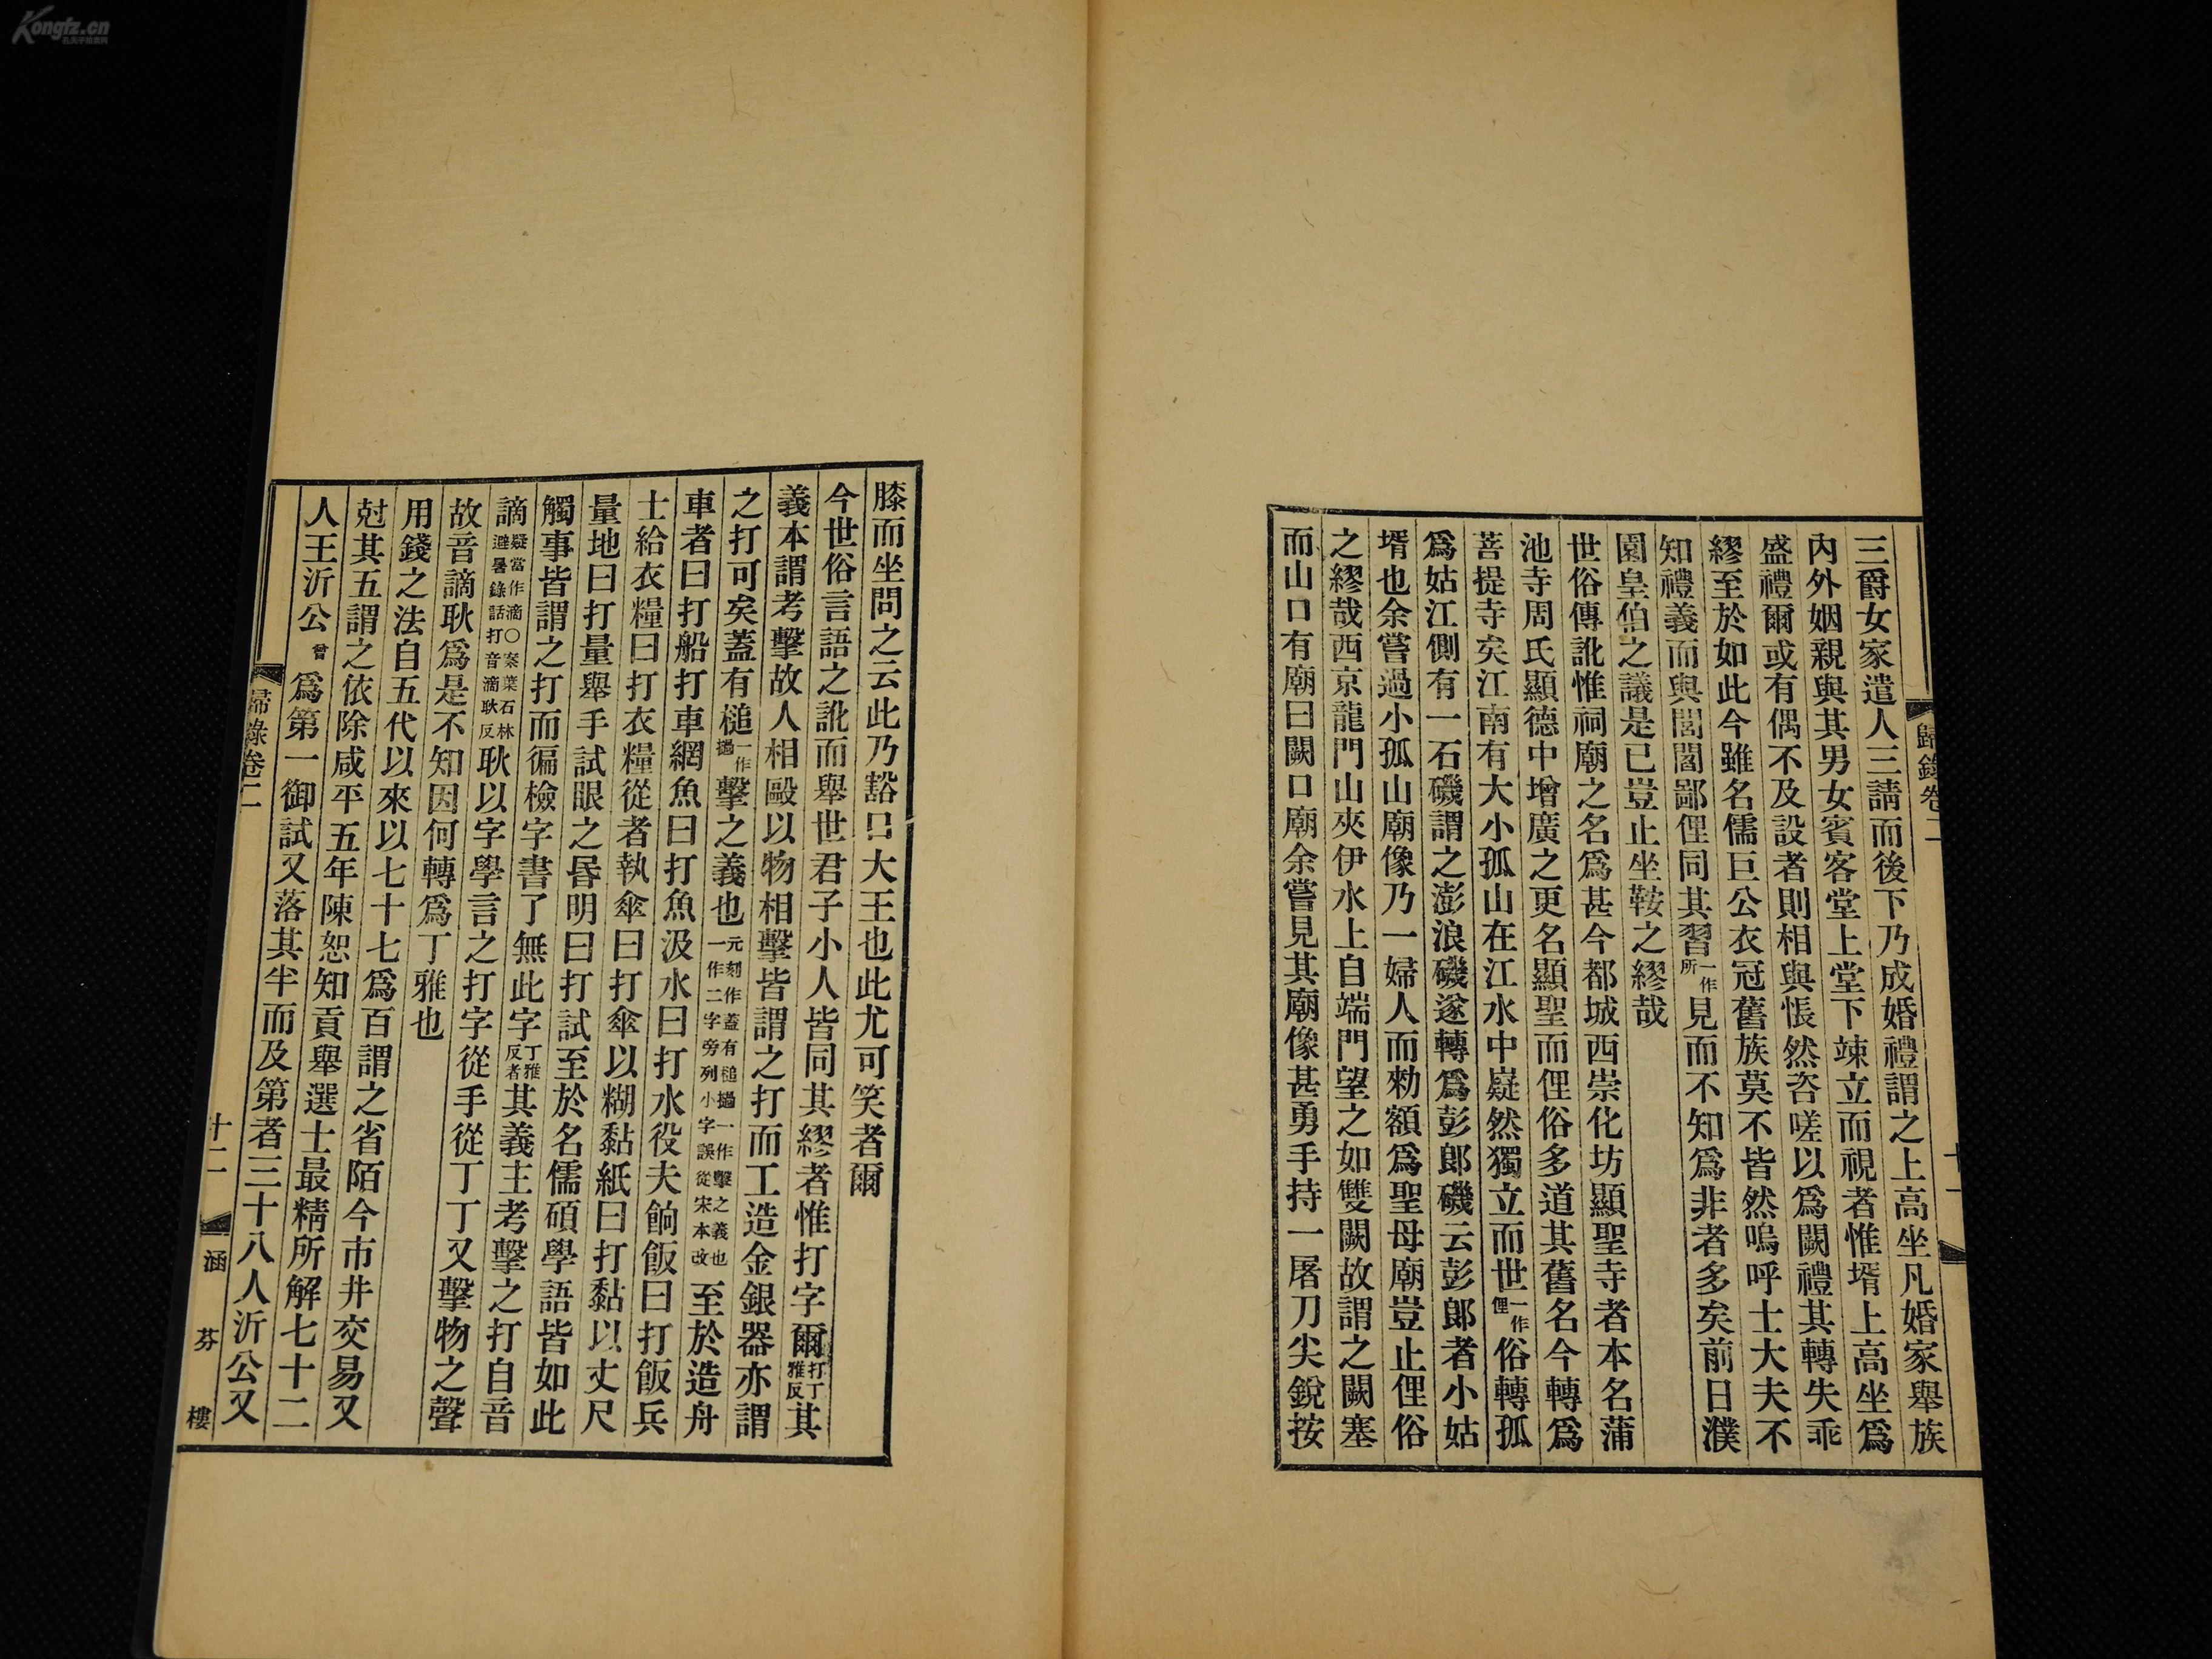 三爵女家遣人三請而後下乃成婚禮謂之上高坐凡婚家舉族
內外姻親與其男女賓客堂上堂下竦立而視者惟壻上高坐爲
盛禮爾或有偶不及設者則相與悵然咨嗟以爲闕禮其轉失乖
繆至於如此今雖名儒巨公衣冠舊族莫不皆然嗚呼士大夫不
知禮義而與閭閻鄙俚同其習一作所見而不知爲非者多矣前日濮
園皇伯之議是已豈止坐鞍之繆哉
世俗傳訛惟祠廟之名爲甚今都城西崇化坊顯聖寺者本名蒲
池寺周氏顯德中增廣之更名顯聖而俚俗多道其舊名今轉爲
菩提寺矣江南有大小孤山在江水中嶷然獨立而世一作俚俗轉孤
爲姑江側有一石磯謂之澎浪磯遂轉爲彭郎磯云彭郎者小姑
壻也余嘗過小孤山廟像乃一婦人而勑額爲聖母廟豈止俚俗
之繆哉西京龍門山夾伊水上自端門望之如雙闕故謂之闕塞
而山口有廟曰闕口廟余嘗見其廟像甚勇手持一屠刀尖銳按
歸錄卷二
十一
膝而坐問之云此乃豁口大王也此尤可笑者爾
今世俗言語之訛而舉世君子小人皆同其繆者惟打字爾打丁雅反其
義本謂考擊故人相毆以物相擊皆謂之打而工造金銀器亦謂
之打可矣蓋有槌一作撾擊之義也元刻作蓋有槌撾一作擊之義也一作二字旁列小字誤從宋本改至於造舟
車者曰打船打車網魚曰打魚汲水曰打水役夫餉飯曰打飯兵
士給衣糧曰打衣糧從者執傘曰打傘以糊黏紙曰打黏以丈尺
量地曰打量舉手試眼之昬明曰打試至於名儒碩學語皆如此
觸事皆謂之打而徧檢字書了無此字丁雅反者其義主考擊之打自音
謫疑當作滴○案葉石林避暑錄話打音滴耿反耿以字學言之打字從手從丁丁又擊物之聲
故音謫耿爲是不知因何轉爲丁雅也
用錢之法自五代以來以七十七爲百謂之省陌今市井交易又
尅其五謂之依除咸平五年陳恕知貢舉選士最精所解七十二
人王沂公曾爲第一御試又落其半而及第者三十八人沂公又
歸錄卷二
十二
涵芬樓
Kongfz.cn